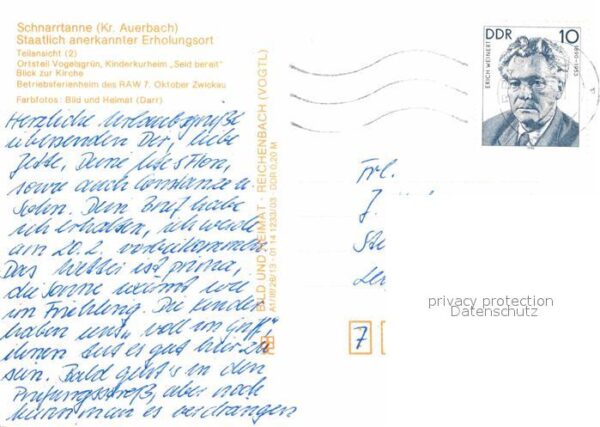 Schnarrtanne (Kr. Auerbach)
Staatlich anerkannter Erholungsort
Teilansicht (2)
Ortsteil Vogelsgrün, Kinderkurheim „Seid bereit"
Blick zur Kirche
Betriebsferienheim des RAW 7. Oktober Zwickau
Farbfotos: Bild und Heimat (Darr)
Herzliche Urlaubsgrüße
übersenden Dir, liebe
Jette, Deine
sowie auch Constanze u.
Dein Brief habe
ich erhalten, ich werde
am 20.2. vorbeikommen.
Das Wetter ist prima,
die Sonne wärmt wie
im Frühling. Die Kinder
haben uns „voll im Griff",
ihnen tut es gut hier zu
sein. Bald geht's in den
Prüfungsstreß, aber noch
kann man es verdrängen
BILD UND HEIMAT · REICHENBACH (VOGTL)
DDR 0,20 M
DDR 10
ERICH WEINERT
1890-1953
Frl.
J
7
privacy protection
Datenschutz